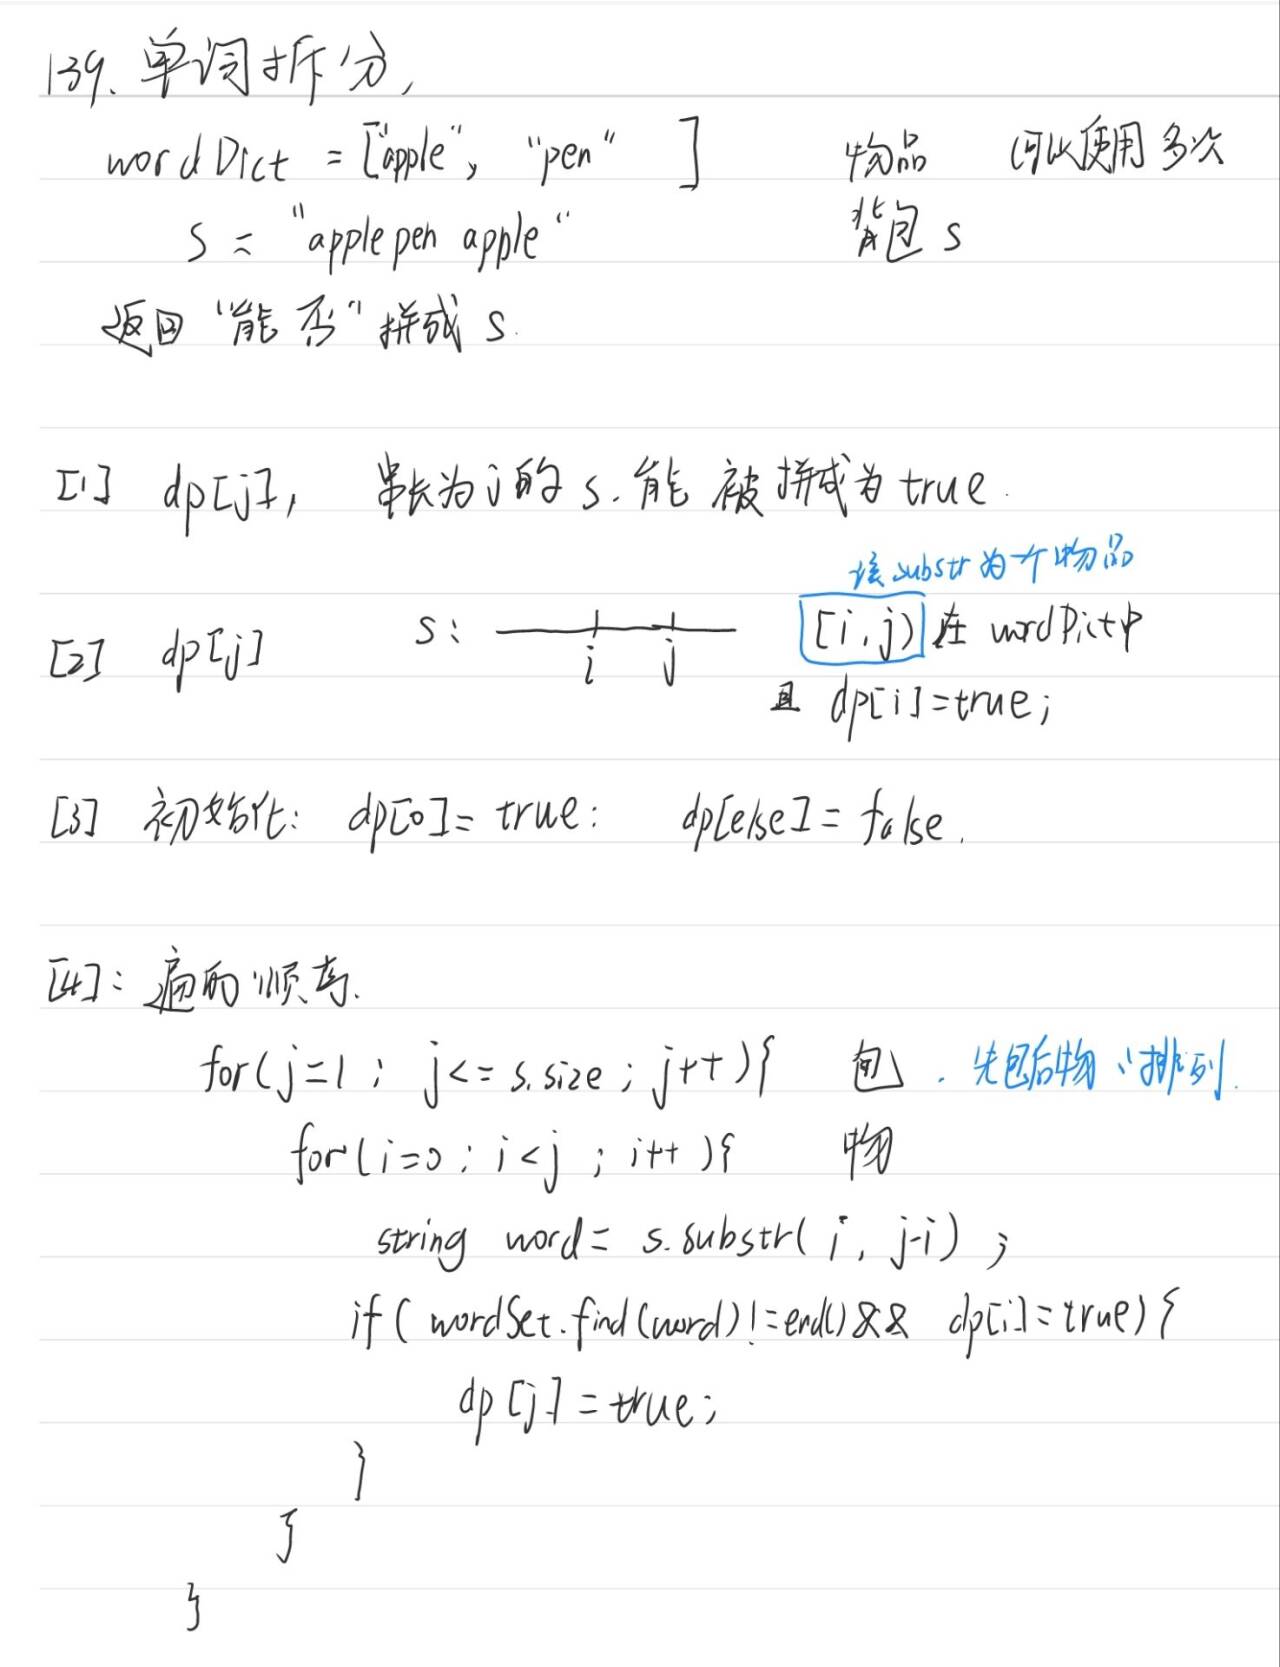 139. 单词拆分,
wordDict = ["apple", "pen" ] 物品 可以使用多次
s = "applepen apple" 背包 s
返回 "能否" 拼成 s.
[1] dp[j], 串长为j的 s. 能 被拼成为 true.
该substr为一个物品
[2] dp[j] s: i j [i, j) 在 wordDict中
且 dp[i]=true;
[3] 初始化: dp[0]= true: dp[else]= false.
[4]: 遍历顺序.
for(j=1 ; j<= s.size ; j++){ 包 . 先包后物 排列.
for(i=0 ; i<j ; i++){ 物
string word= s.substr( i, j-i) ;
if( wordSet.find(word)!=end()&& dp[i]=true){
dp[j]=true;
}
}
}